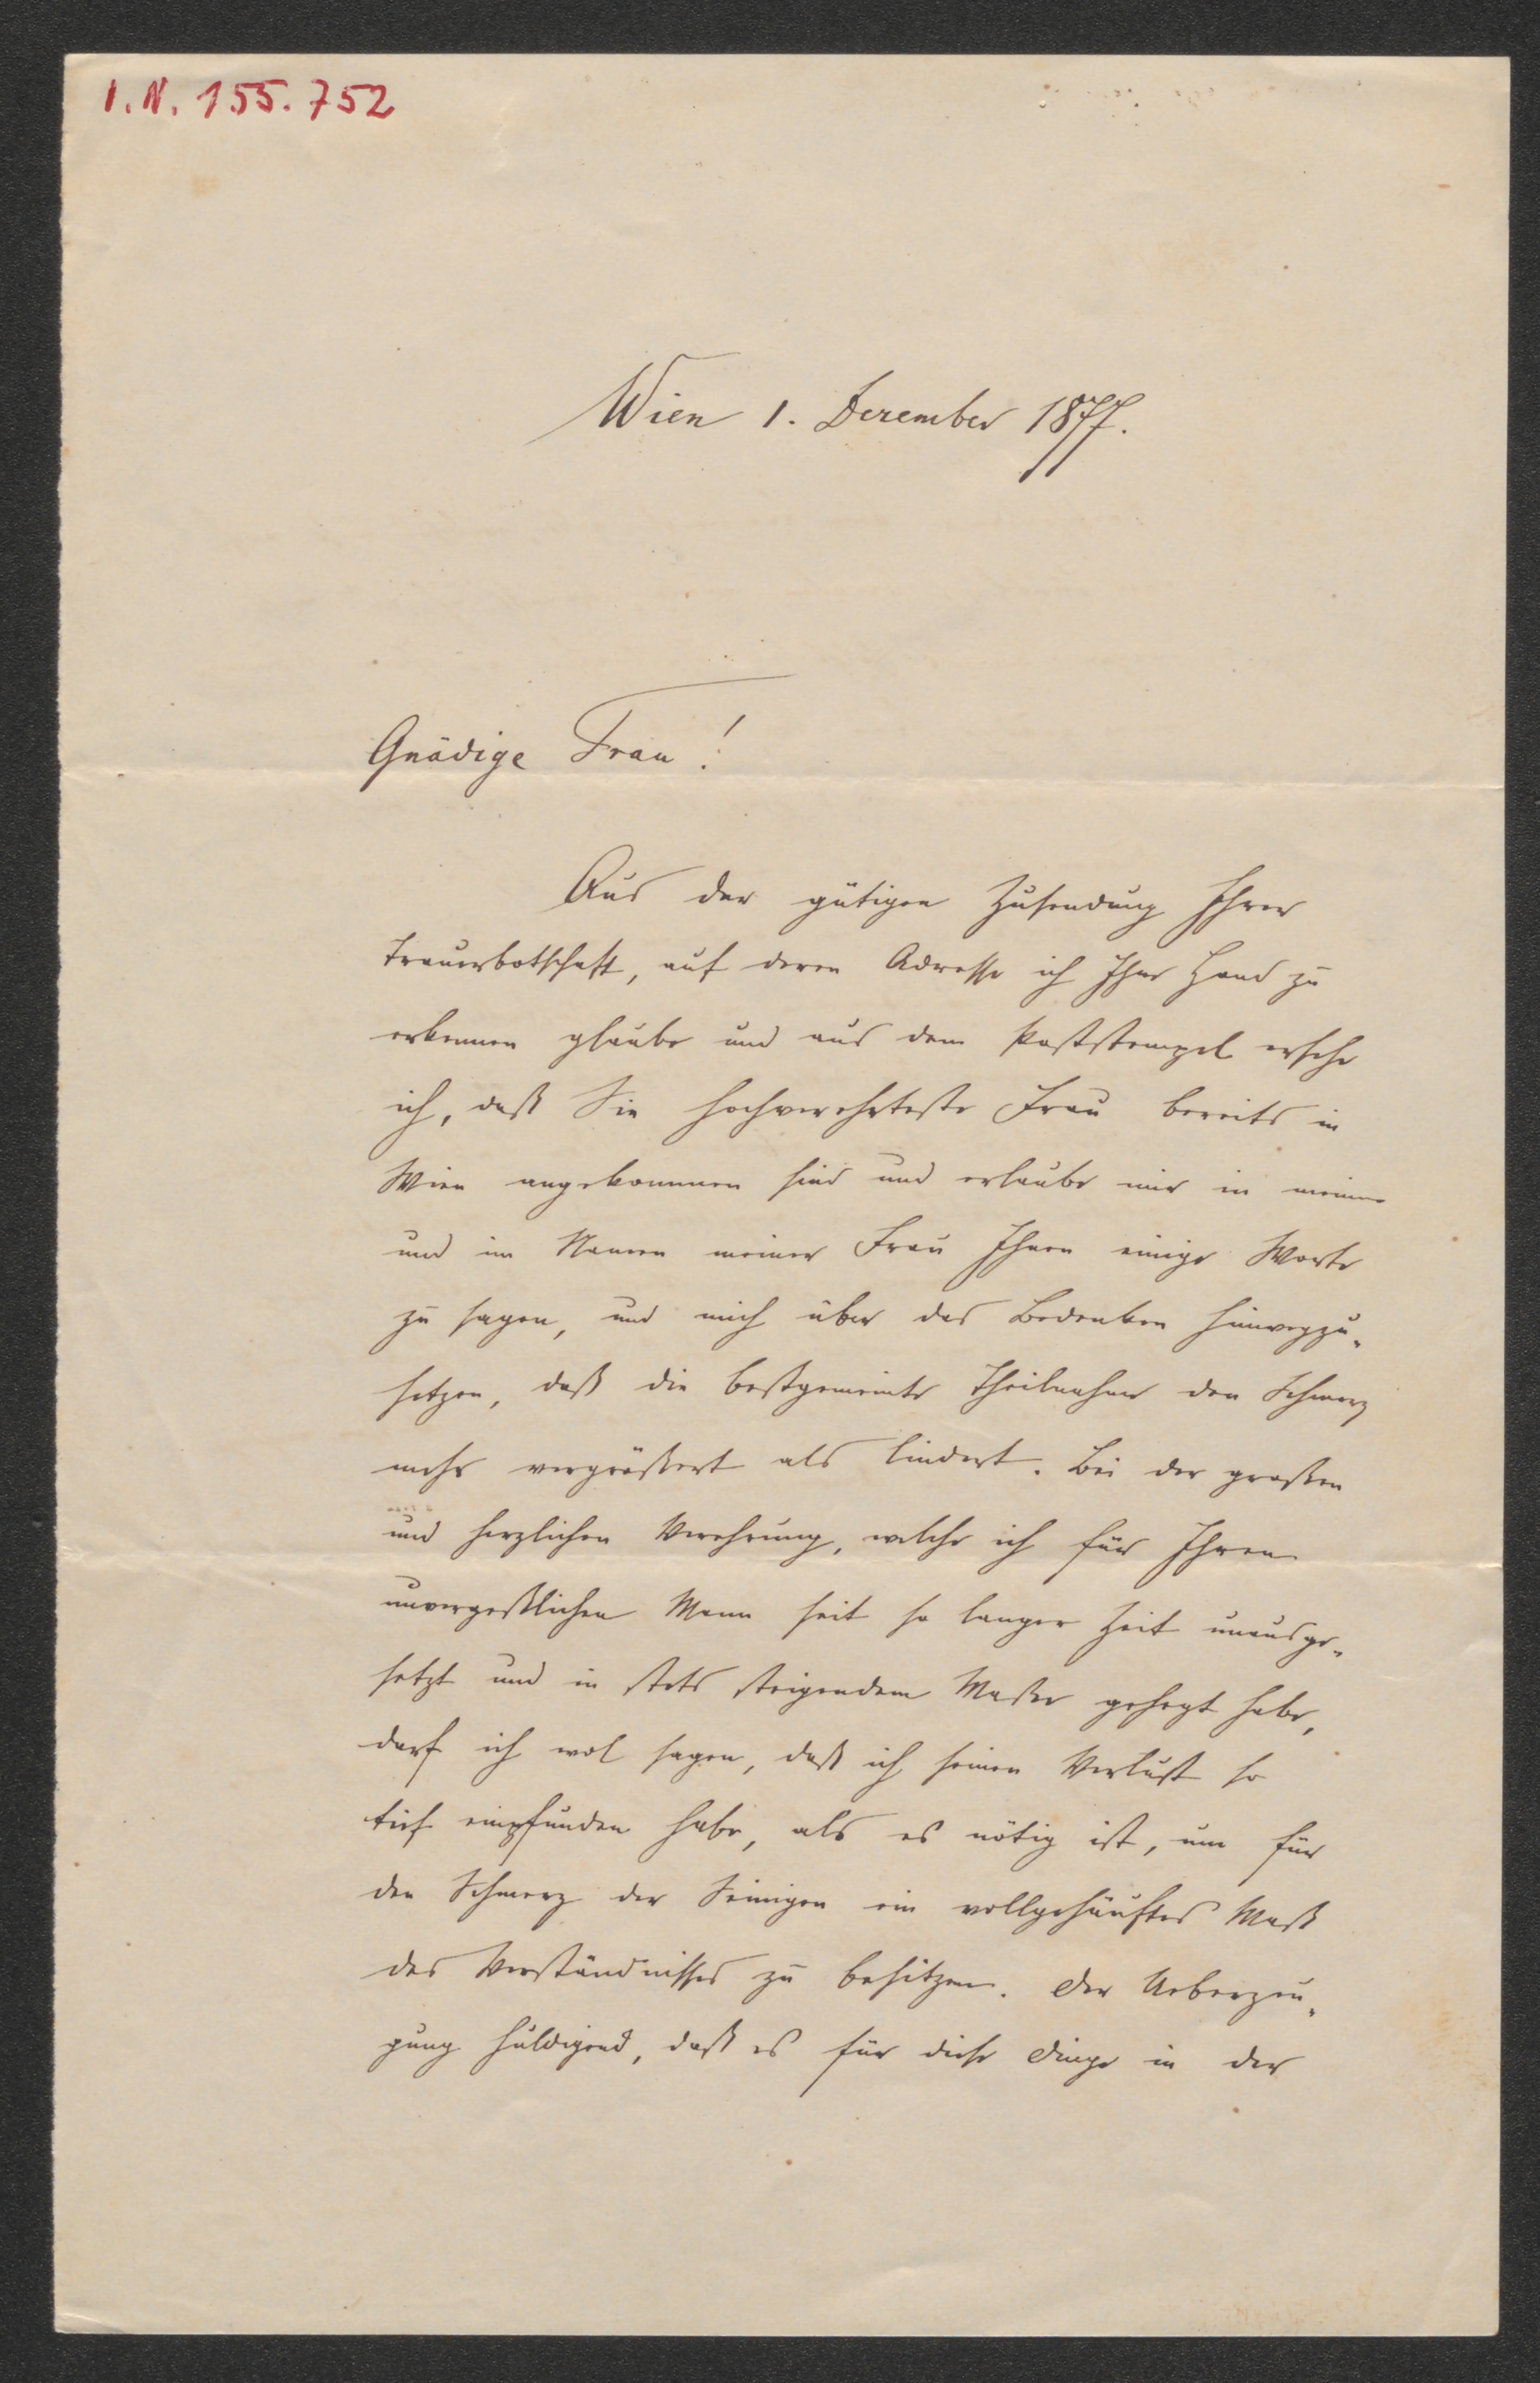 I.N. 155.752
Wien 1. Dezember 1877.
Gnädige Frau!
Aus der gütigen Zusendung Ihrer
Trauerbotschaft, auf deren Adresse ich Ihre Hand zu
erkennen glaube und aus dem Poststempel ersehe
ich, daß Sie hochverehrteste Frau bereits in
Wien angekommen sind und erlaube mir in meinem
und im Namen meiner Frau Ihnen einige Worte
zu sagen, und mich über das Bedenken hinwegzu-
setzen, daß die bestgemeinte Theilnahme den Schmerz
mehr vergrößert als lindert. Bei der großen
und herzlichen Verehrung, welche ich für Ihren
unvergeßlichen Mann seit so langer Zeit unausge-
setzt und in stets steigendem Maße gehegt habe,
darf ich wol sagen, daß ich seinen Verlust so
tief empfunden habe, als es nötig ist, um für
den Schmerz der Seinigen ein vollgehäuftes Maß
des Verständnisses zu besitzen. Der Ueberzeu-
gung huldigend, daß es für diese Dinge in der